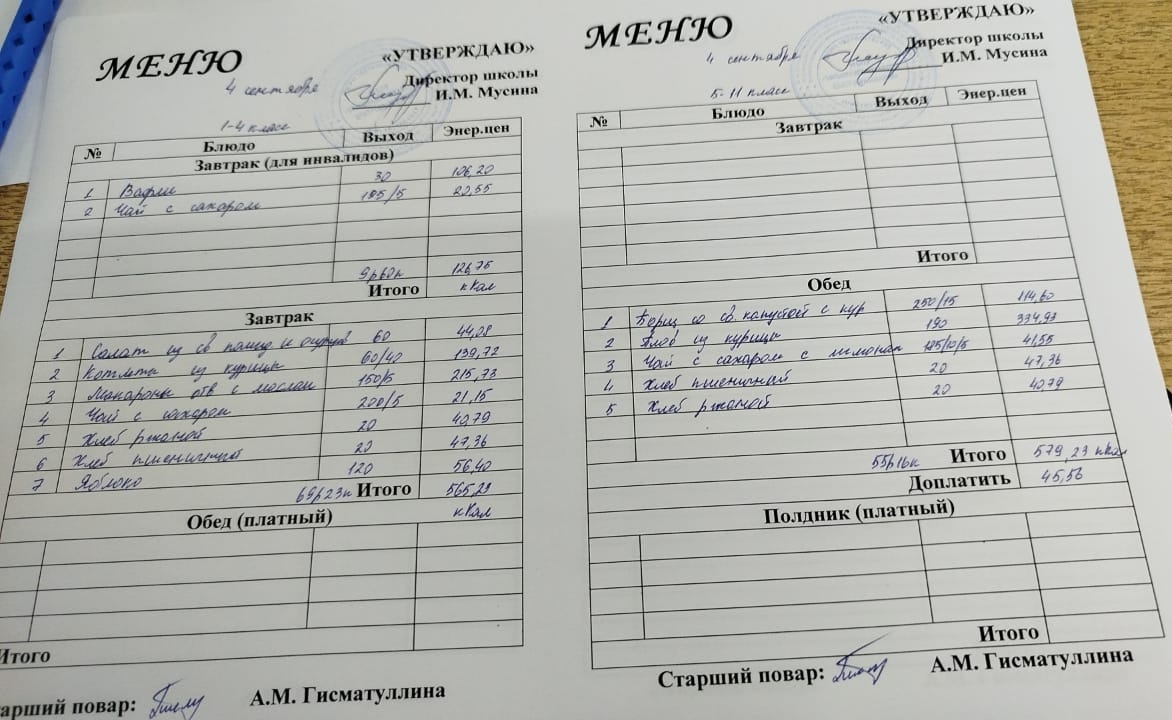 МЕНЮ
«УТВЕРЖДАЮ»
Директор школы
И.М. Мусина
4 сентября
1-4 класс
№ Блюдо Выход Энер.цен
Завтрак (для инвалидов)
1 Вафли 30 106,20
2 Чай с сахаром 185/5 20,55
9р60к 126,75
Итого кКал
Завтрак
1 Салат из св помид и огурцов 60 44,08
2 Котлеты из курицы 60/40 139,72
3 Макароны отв с маслом 150/5 215,73
4 Чай с сахаром 200/5 21,15
5 Хлеб ржаной 20 40,79
6 Хлеб пшеничный 20 47,36
7 Яблоко 120 56,40
69р23к Итого 565,23
кКал
Обед (платный)
Итого
арший повар:
А.М. Гисматуллина
МЕНЮ
«УТВЕРЖДАЮ»
Директор школы
И.М. Мусина
4 сентября
5-11 класс
№ Блюдо Выход Энер.цен
Завтрак
Итого
Обед
1 Борщ со св. капустой с кур 250/15 114,60
2 Плов из курицы 190 334,93
3 Чай с сахаром с лимоном 185/10/5 41,55
4 Хлеб пшеничный 20 47,36
5 Хлеб ржаной 20 40,79
55р16к Итого 579,23 кКал
Доплатить 45,56
Полдник (платный)
Итого
Старший повар:
А.М. Гисматуллина